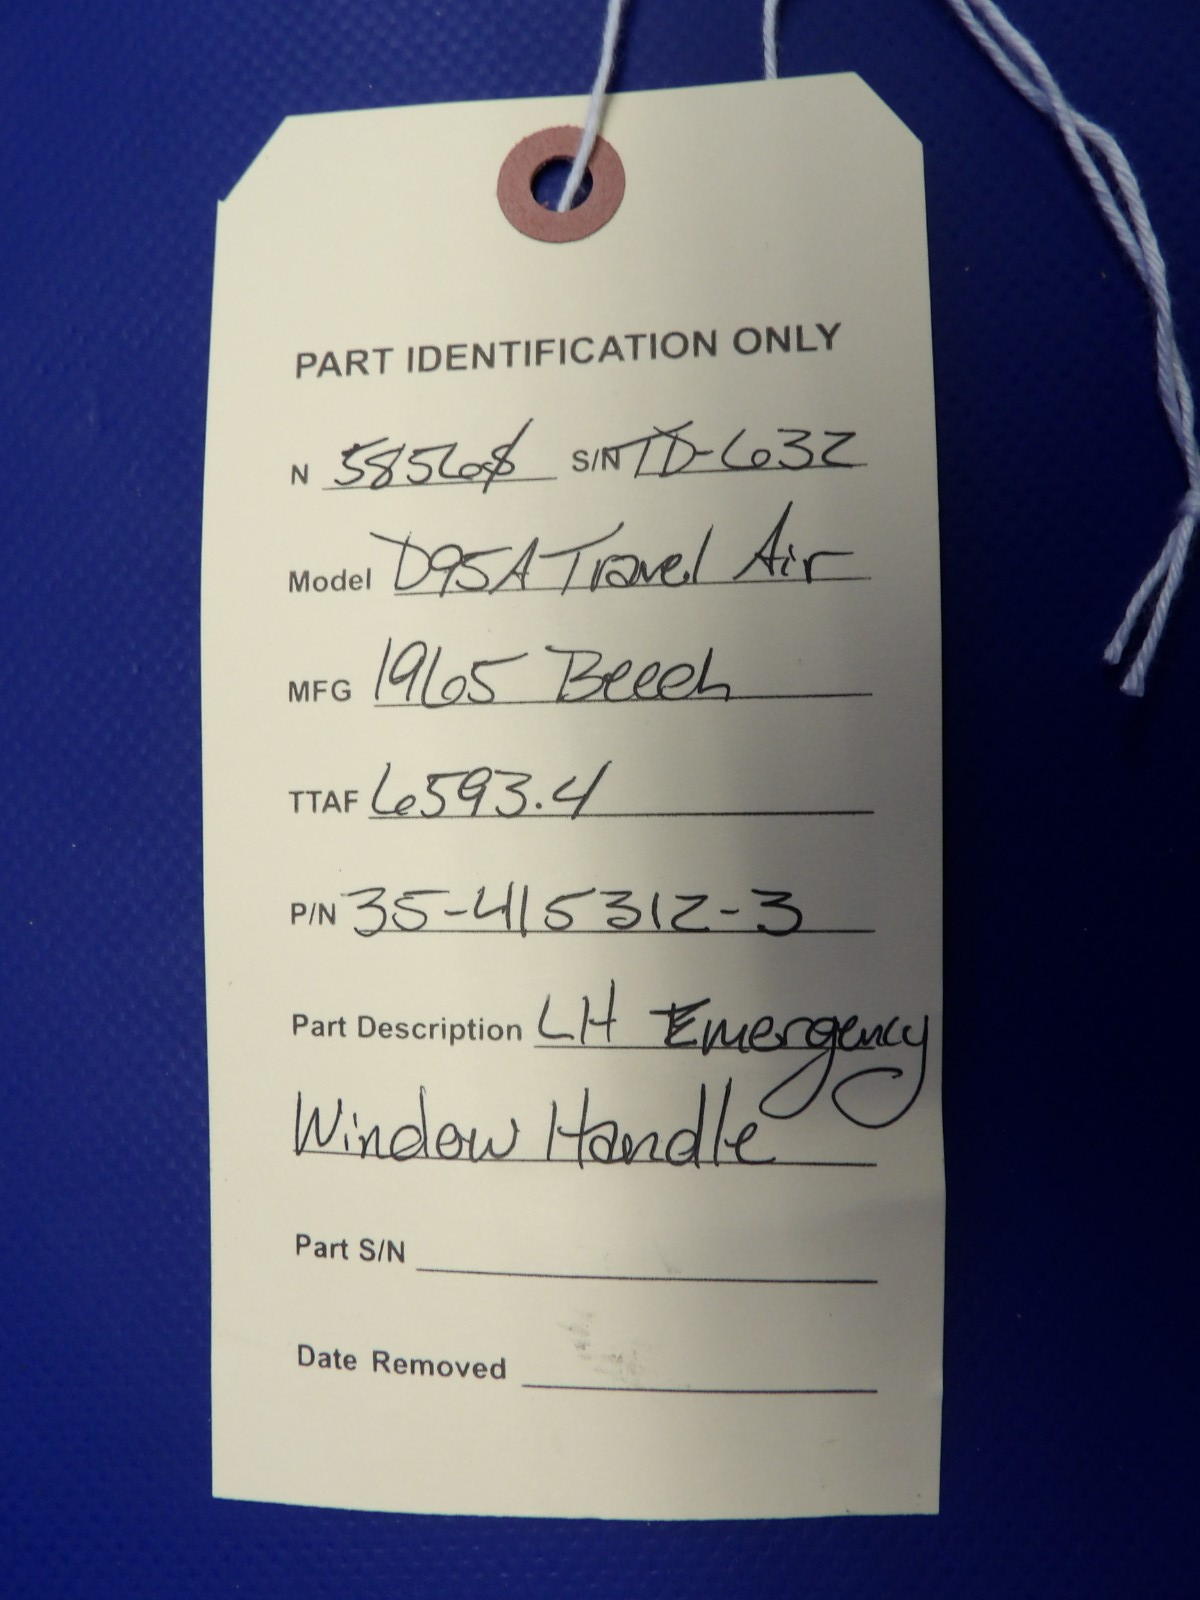 PART IDENTIFICATION ONLY
N 5856S S/N TD-632
Model D95A Travel Air
MFG 1965 Beech
TTAF 6593.4
P/N 35-415312-3
Part Description LH Emergency
Window Handle
Part S/N
Date Removed